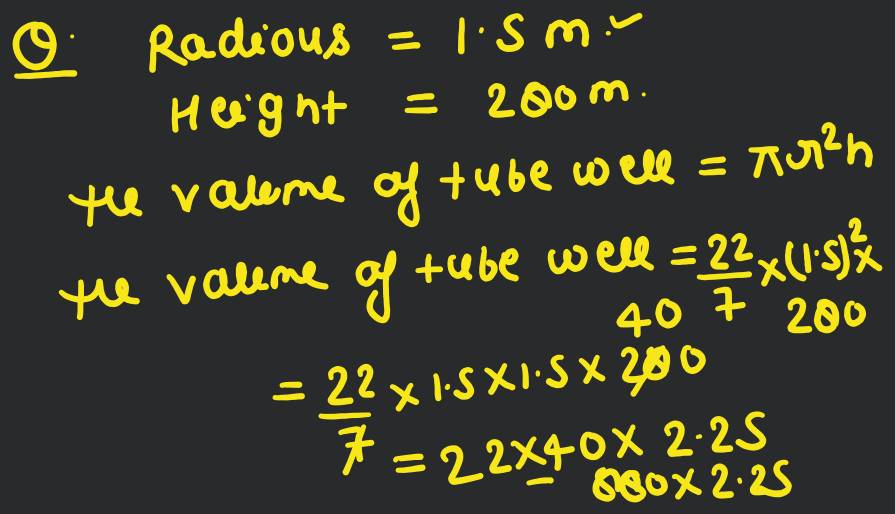 Q. Radious = 1.5 m.✓
Height = 280 m.
the valume of tube well = πr²h
the valume of tube well = 22/7 × (1.5)² ×
40 280
= 22/7 × 1.5 × 1.5 × 280
= 22 × 40 × 2.25
880 × 2.25